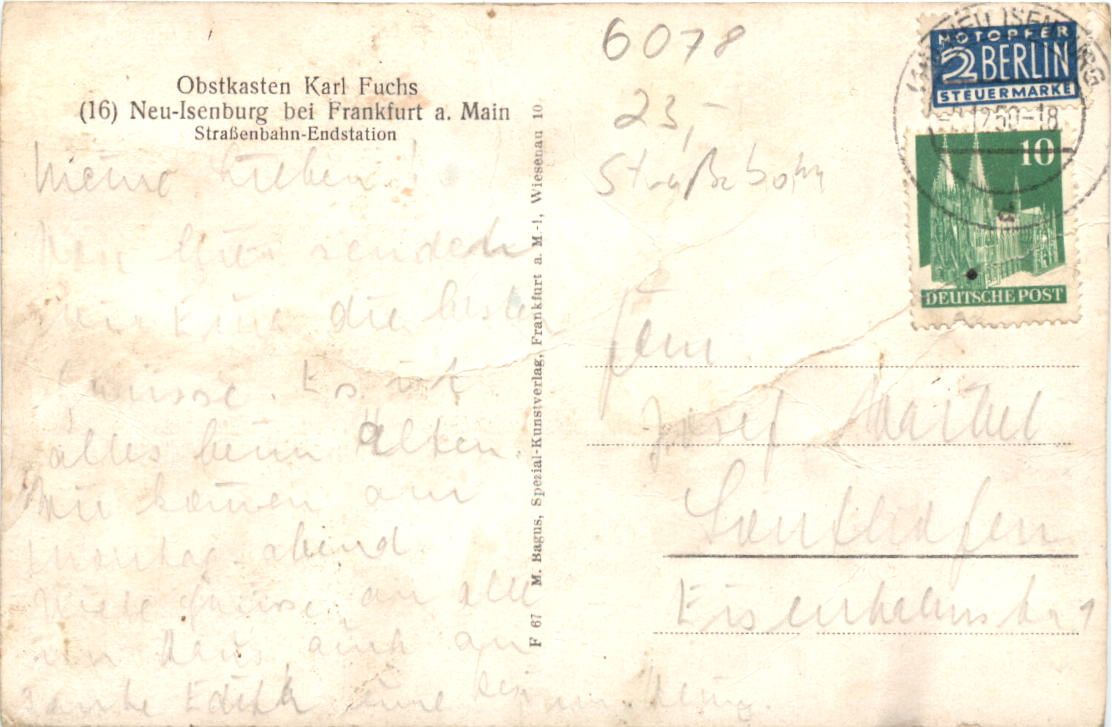 Obstkasten Karl Fuchs
(16) Neu-Isenburg bei Frankfurt a. Main
Straßenbahn-Endstation
Meine Lieben!
senden
wir die besten
Grüsse. Es ist
alles beim Alten.
Wir kommen am
Montag abend.
Viele Grüsse an alle
im Haus auch an
Tante Edith
F 67 M. Bagus, Spezial-Kunstverlag, Frankfurt a. M.-1, Wiesenau 10.
6078
23,-
Straßebahn
NOTOPFER
2 BERLIN
STEUERMARKE
NEU ISENBURG
12.50-18
d
10
DEUTSCHE POST
Fam.
Josef
Sonthofen
Eisenbahnstr 1